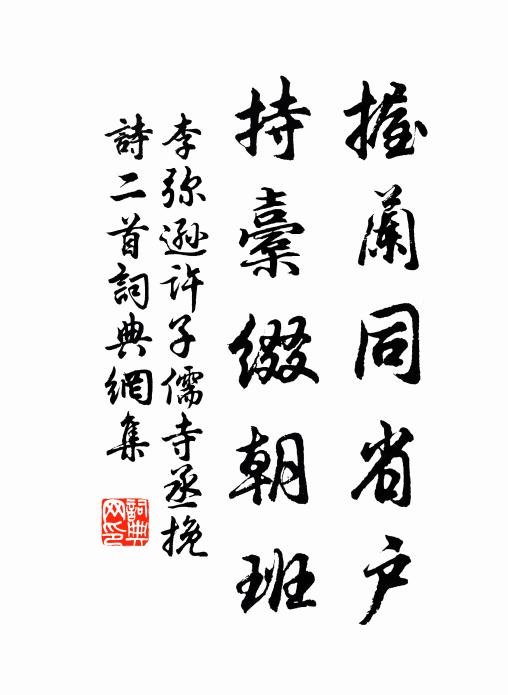 握蘭同省户
持橐綴朝班
李弥遜许子儒寺丞挽
詩二首詞典網集
詞典網印